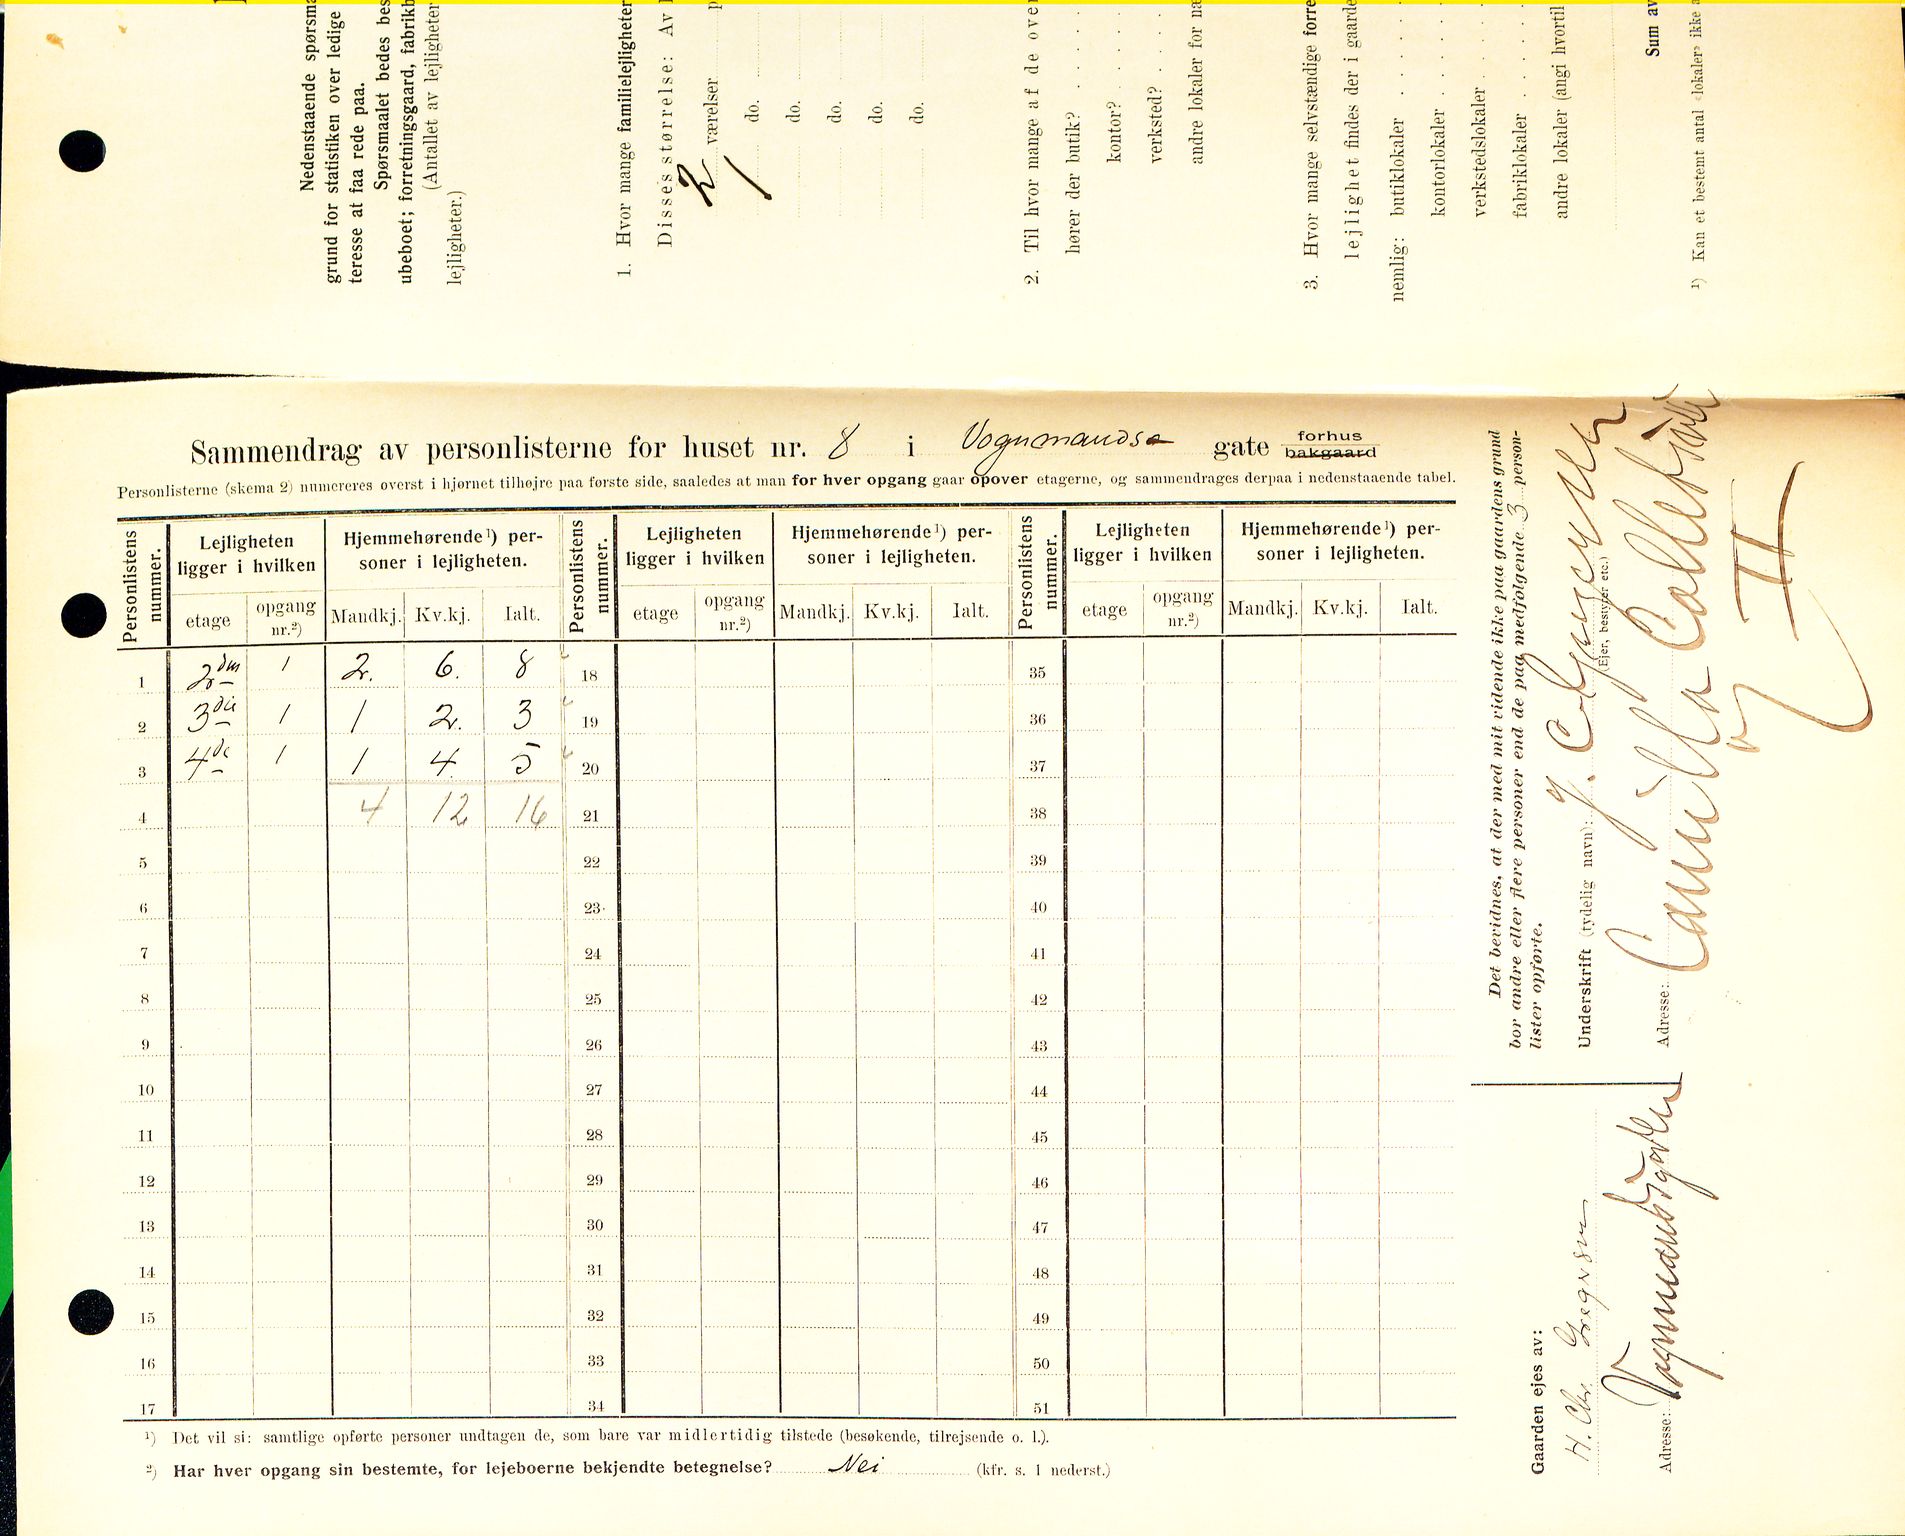 Nedenstaaende spørsma
grund for statistiken over ledige
teresse at faa rede paa.
Spørsmaalet bedes bes
ubeboet; forretningsgaard, fabrikb
(Antallet av lejligheter
lejligheter.)
1. Hvor mange familielejligheter
Disses størrelse: Av
2 værelser p
1 do.
do.
do.
do.
do.
2. Til hvor mange af de over
hører der butik?
kontor?
verksted?
andre lokaler for næ
3. Hvor mange selvstændige forre
lejlighet findes der i gaarde
nemlig: butiklokaler
kontorlokaler
verkstedslokaler
fabriklokaler
andre lokaler (angi hvortil
Sum av
¹) Kan et bestemt antal «lokaler» ikke a
Sammendrag av personlisterne for huset nr. 8 i Vognmands gate forhus bakgaard
Personlisterne (skema 2) numereres øverst i hjørnet tilhøjre paa første side, saaledes at man for hver opgang gaar opover etagerne, og sammendrages derpaa i nedenstaaende tabel.
Personlistens nummer. Lejligheten ligger i hvilken Hjemmehørende¹) personer i lejligheten. Personlistens nummer. Lejligheten ligger i hvilken Hjemmehørende¹) personer i lejligheten. Personlistens nummer. Lejligheten ligger i hvilken Hjemmehørende¹) personer i lejligheten.
etage opgang nr.²) Mandkj. Kv.kj. Ialt. etage opgang nr.²) Mandkj. Kv.kj. Ialt. etage opgang nr.²) Mandkj. Kv.kj. Ialt.
1 2den 1 2. 6. 8 18 35
2 3die 1 1 2. 3 19 36
3 4de 1 1 4. 5 20 37
4 4 12 16 21 38
5 22 39
6 23 40
7 24 41
8 25 42
9 26 43
10 27 44
11 28 45
12 29 46
13 30 47
14 31 48
15 32 49
16 33 50
17 34 51
¹) Det vil si: samtlige opførte personer undtagen de, som bare var midlertidig tilstede (besøkende, tilrejsende o. l.).
²) Har hver opgang sin bestemte, for lejeboerne bekjendte betegnelse? Nei (kfr. s. 1 nederst.)
Det bevidnes, at der med mit vidende ikke paa gaardens grund
bor andre eller flere personer end de paa medfølgende 3 person-
lister opførte.
Underskrift (tydelig navn):
(Ejer, bestyrer etc.)
Adresse: Camilla Colletsvei
II
Gaarden ejes av:
H. Chr. Gregersen
Adresse: Vognmandsgaten